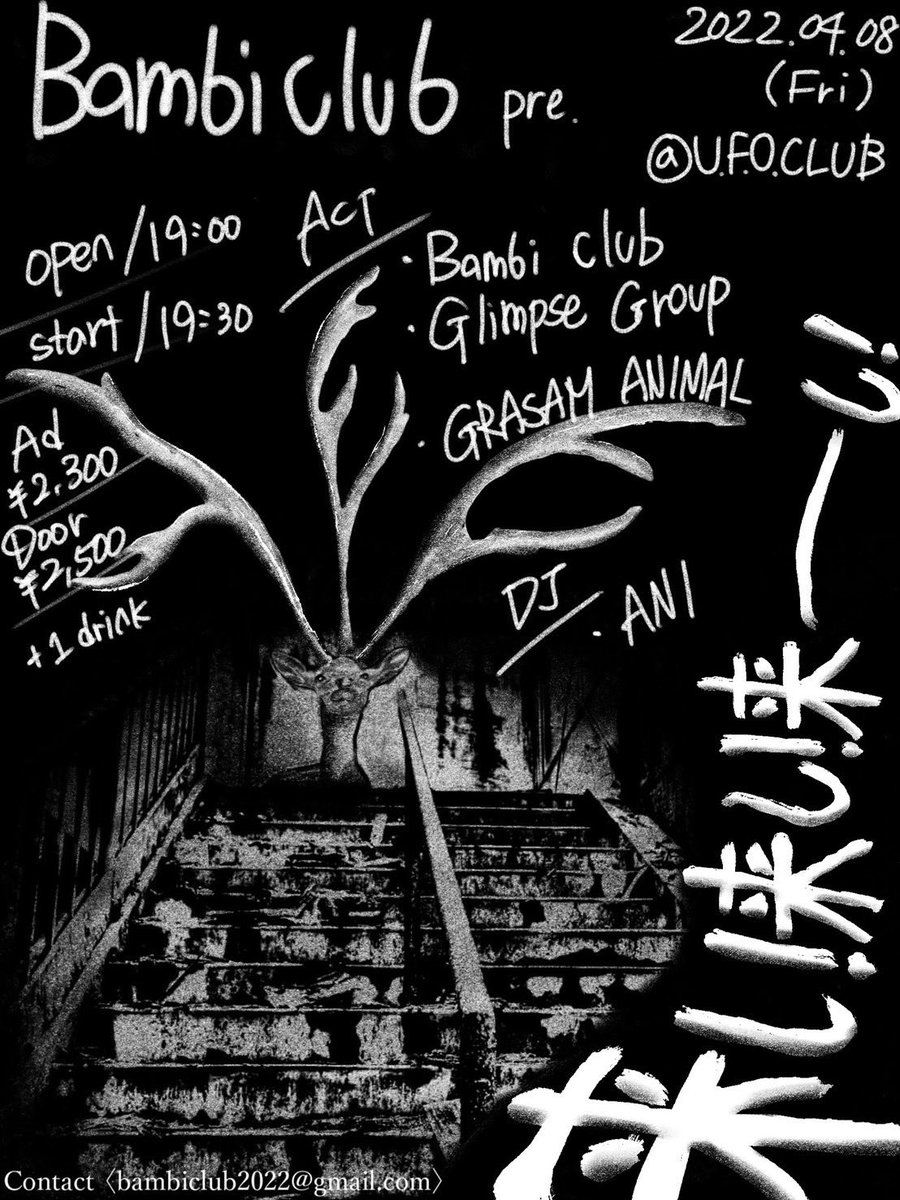 Bambi club pre.
2022.04.08
(Fri)
@U.F.O.CLUB
open/19:00
start/19:30
Ad
¥2,300
Door
¥2,500
+1 drink
ACT
・Bambi club
・Glimpse Group
・GRASAM ANIMAL
DJ
・ANI
来し!来し!来ーし!
Contact〈bambiclub2022@gmail.com〉